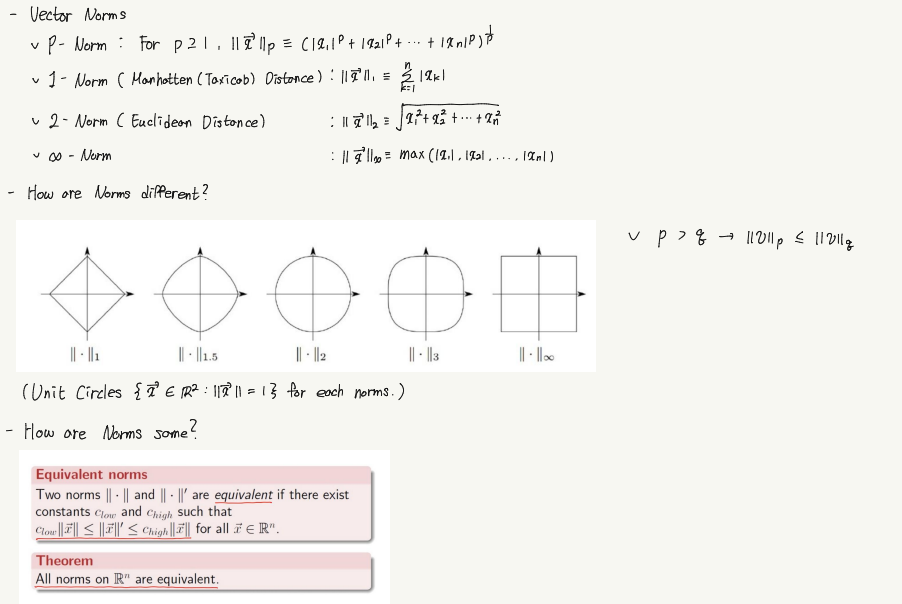 - Vector Norms
∨ P-Norm : For p ≥ 1, ||x⃗||p ≡ (|x1|^p + |x2|^p + ··· + |xn|^p)^(1/p)
∨ 1-Norm (Manhatten (Taxicob) Distance) : ||x⃗||1 ≡ Σ_{k=1}^{n} |xk|
∨ 2-Norm (Euclideon Distance) : ||x⃗||2 ≡ √(x1² + x2² + ··· + xn²)
∨ ∞-Norm : ||x⃗||∞ ≡ max(|x1|, |x2|, ..., |xn|)
- How are Norms different?
∨ p > q → ||v||p ≤ ||v||q
‖·‖1 ‖·‖1.5 ‖·‖2 ‖·‖3 ‖·‖∞
(Unit Circles {x⃗ ∈ R² : ||x⃗|| = 1} for each norms.)
- How are Norms some?
Equivalent norms
Two norms ‖·‖ and ‖·‖′ are equivalent if there exist
constants c_low and c_high such that
c_low‖x⃗‖ ≤ ‖x⃗‖′ ≤ c_high‖x⃗‖ for all x⃗ ∈ ℝⁿ.
Theorem
All norms on ℝⁿ are equivalent.